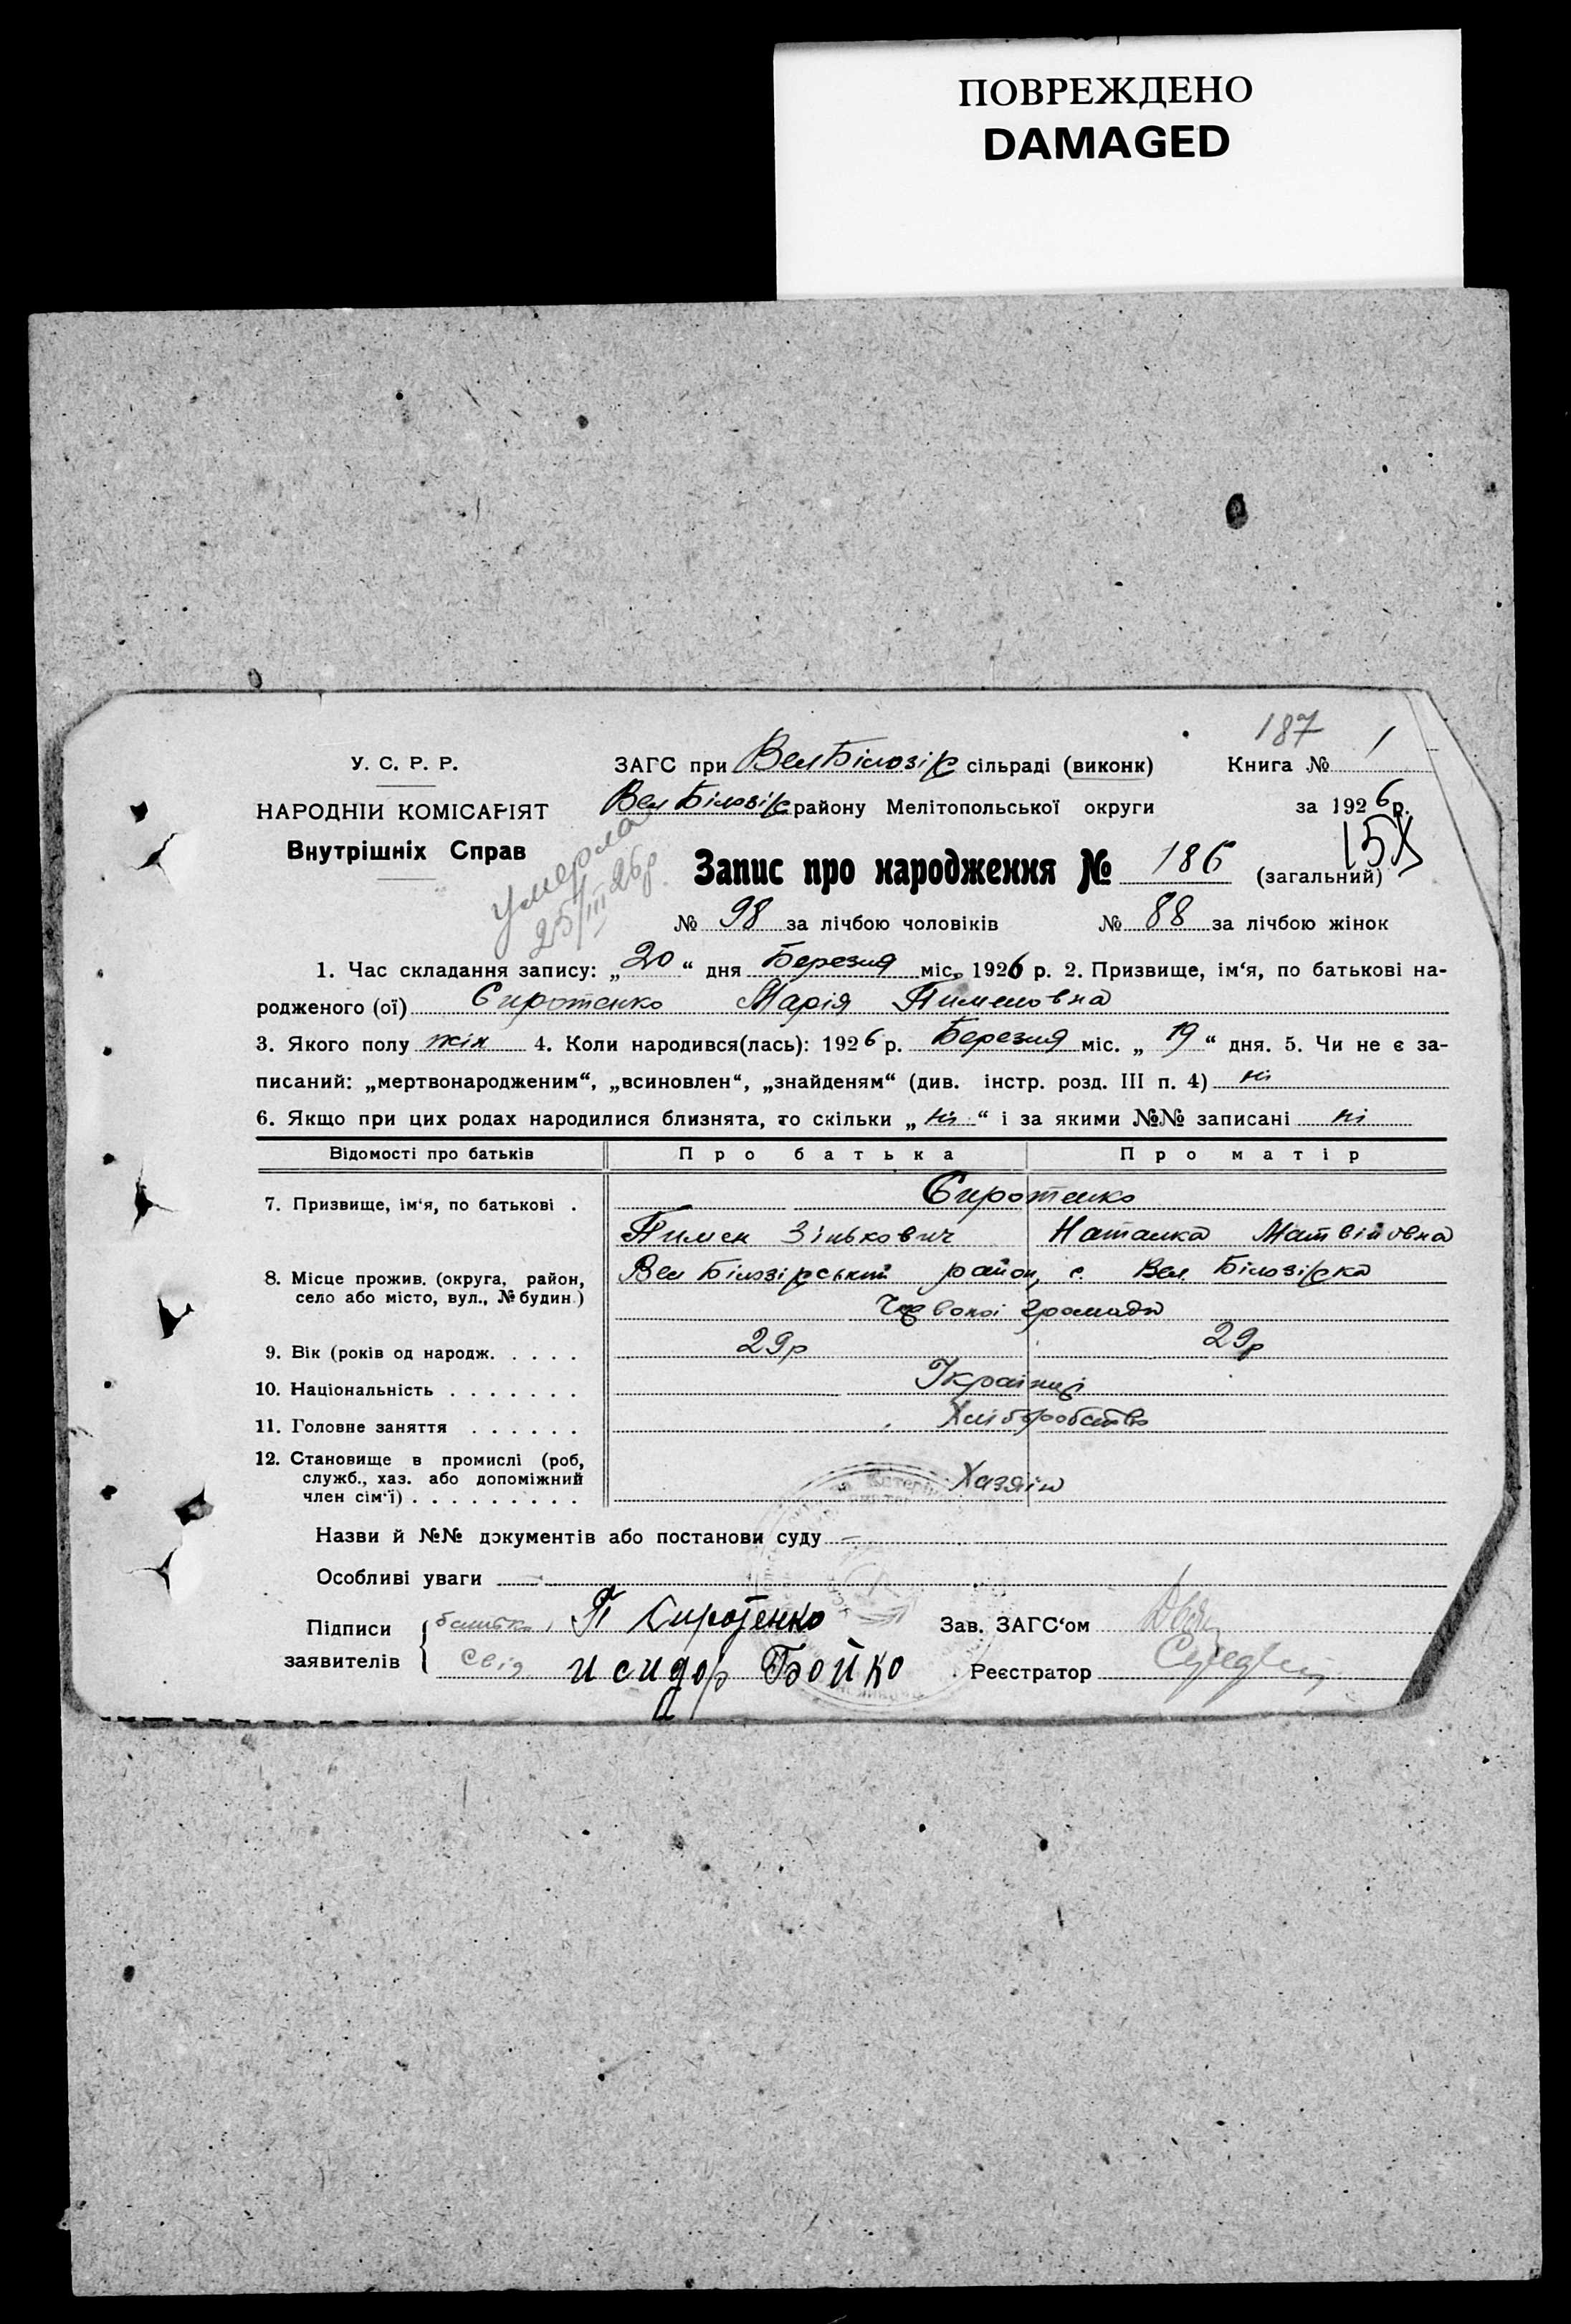 ПОВРЕЖДЕНО
DAMAGED
187
У. С. Р. Р. ЗАГС при Вел Білозір сільраді (виконк) Книга № 1
НАРОДНІЙ КОМІСАРІЯТ Вел Білозір району Мелітопольської округи за 1926 р.
Внутрішніх Справ
умерла
25/III 26р.
Запис про народження № 186 (загальний)
№ 98 за лічбою чоловіків № 88 за лічбою жінок
1. Час складання запису: „20“ дня Березня міс. 1926 р. 2. Призвище, ім‘я, по батькові на-
родженого (ої) Сиротенко Марія Пименовна
3. Якого полу жін 4. Коли народився(лась): 1926 р. Березня міс. „19“ дня. 5. Чи не є за-
писаний: „мертвонародженим“, „всиновлен“, „знайденям“ (див. інстр. розд. III п. 4) ні
6. Якщо при цих родах народилися близнята, то скільки „ні“ і за якими №№ записані ні
Відомості про батьків Про батька Про матір
7. Призвище, ім‘я, по батькові . Сиротенко
Пимен Зінькович Наталка Матвійовна
8. Місце прожив. (округа, район, Вел Білозірський район, с. Вел. Білозірка
село або місто, вул., № будин.) громади
9. Вік (років од народж. . . . . 29р 29р
10. Національність . . . . . . . Українці
11. Головне заняття . . . . . . Хліборобство
12. Становище в промислі (роб,
служб., хаз. або допоміжний Хазяїн
член сім‘ї) . . . . . . . . .
Назви й №№ документів або постанови суду —
Особливі уваги —
Підписи батько, П Сиротенко Зав. ЗАГС‘ом
заявителів Свід исидор Бойко Реєстратор